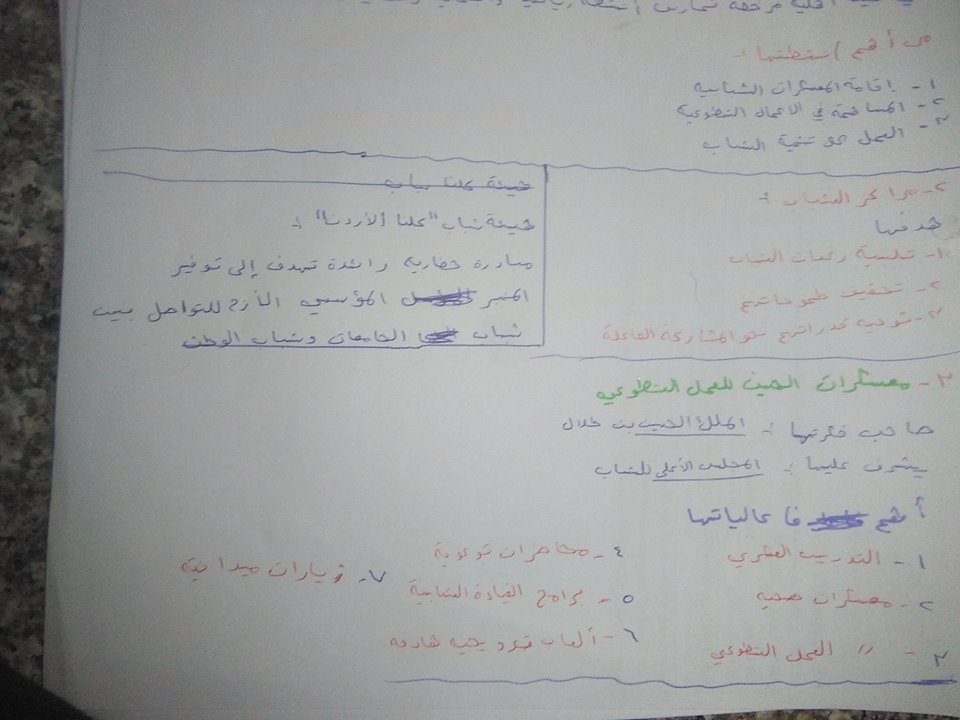 من أهم أنشطتها :-
١- إقامة المعسكرات الشبابية
٢- المساهمة في الأعمال التطوعية
٣- العمل على تنمية الشباب
٢- مراكز الشباب :-
هدفها
١- تلبية رغبات الشباب
٢- تحقيق طموحاتهم
٣- توجيه قدراتهم نحو المشاركة الفاعلة
هيئة شباب "كلنا الأردن" :-
مبادرة حضارية رائدة تهدف إلى توفير
المنبر المؤسسي اللازم للتواصل بين
شباب الجامعات وشباب الوطن
٣- معسكرات الحسين للعمل التطوعي
صاحب فكرتها :- الملك الحسين بن طلال
يشرف عليها :- المجلس الأعلى للشباب
أهم فعالياتها
١- التدريب العسكري
٢- معسكرات صحية
٣- " العمل التطوعي
٤- محاضرات توعوية
٥- برامج القيادة الشبابية
٦- ألعاب ترويحية هادفة
٧- زيارات ميدانية